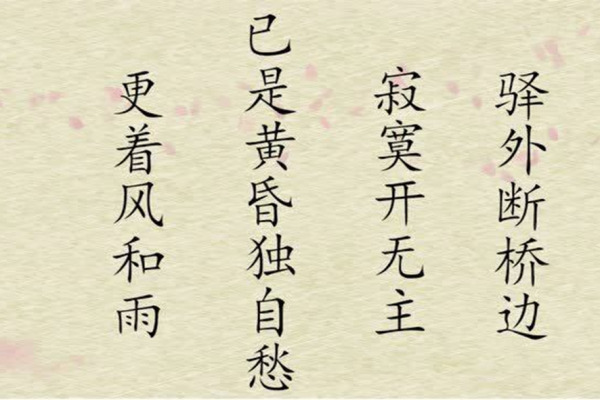 驿外断桥边
寂寞开无主
已是黄昏独自愁
更着风和雨